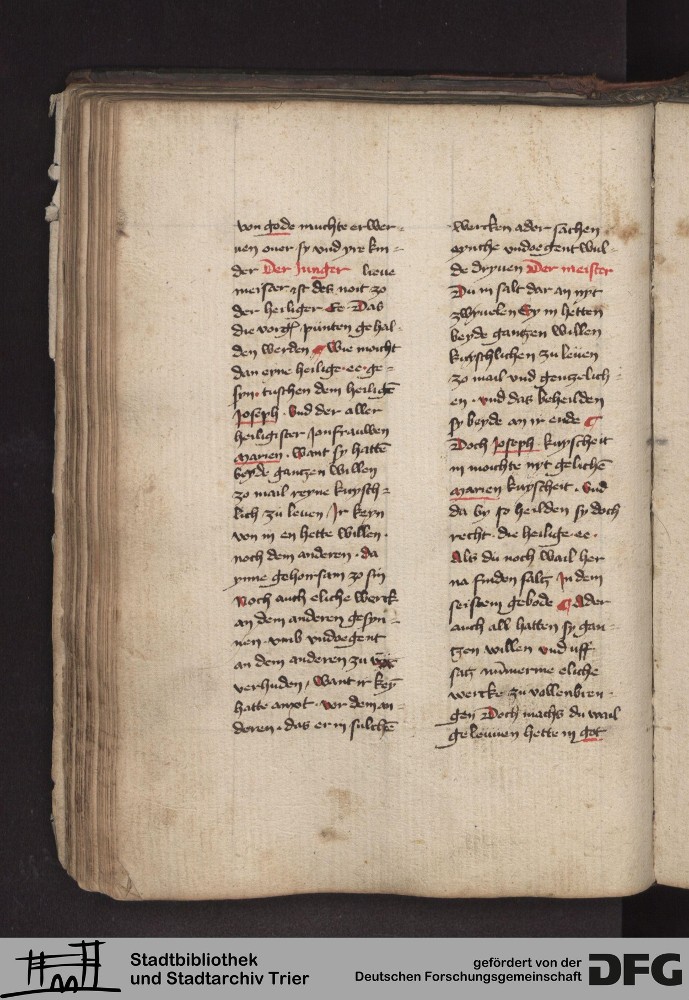 von gode muchte erwer-
uen ouer sy vnd yre kin-
der Der Junger lieue
meister ist des noit zo
der heiliger Ee. Das
die vorgs. punten gehal-
den werden Wie moicht
dan eyne heilige. ee. ge-
syn. tuschen dem heiligē
Joseph. Vnd der aller
heiligister Jonfrauwen
Marien. Want sy hattē
beyde gantzen willen
zo mail reyne kuysch-
lich zu leuen / Ir keyn
von in en hette willen.
noch dem anderen. da
ynne gehoirsam zo sin
Noch auch eliche werck
an dem anderen gesyn-
nen. vmb vndoegent
an dem anderen zu
verhuden / Want ir keȳ
hatte anxt. vor dem an-
deren. das er in sulchē
wercken ader sachen
eynche vndoegent wul-
de dryuen Der meister
Du in salt dar an nyt
zwyuelen Sy in hetten
beyde gantzen willen
kuyschlichen zu leuen
zo mail vnd gentzelich-
en. vnd das beheilden
sy beyde an ir ende
Doch Joseph. kuyscheit
in moichte nyt gelichē
Marien kuyscheit. Vnd
da by so heilden sy doch
recht. die heilige. ee.
Als du noch wail her
na finden saltz In dem
seistem gebode Ader
auch all hatten sy gan-
tzen willen vnd uff
satz nūmerme eliche
wercke zu vollenbren-
gen Doch machs du wail
geleuuen hette in got
Stadtbibliothek
und Stadtarchiv Trier
gefördert von der
Deutschen Forschungsgemeinschaft
DFG